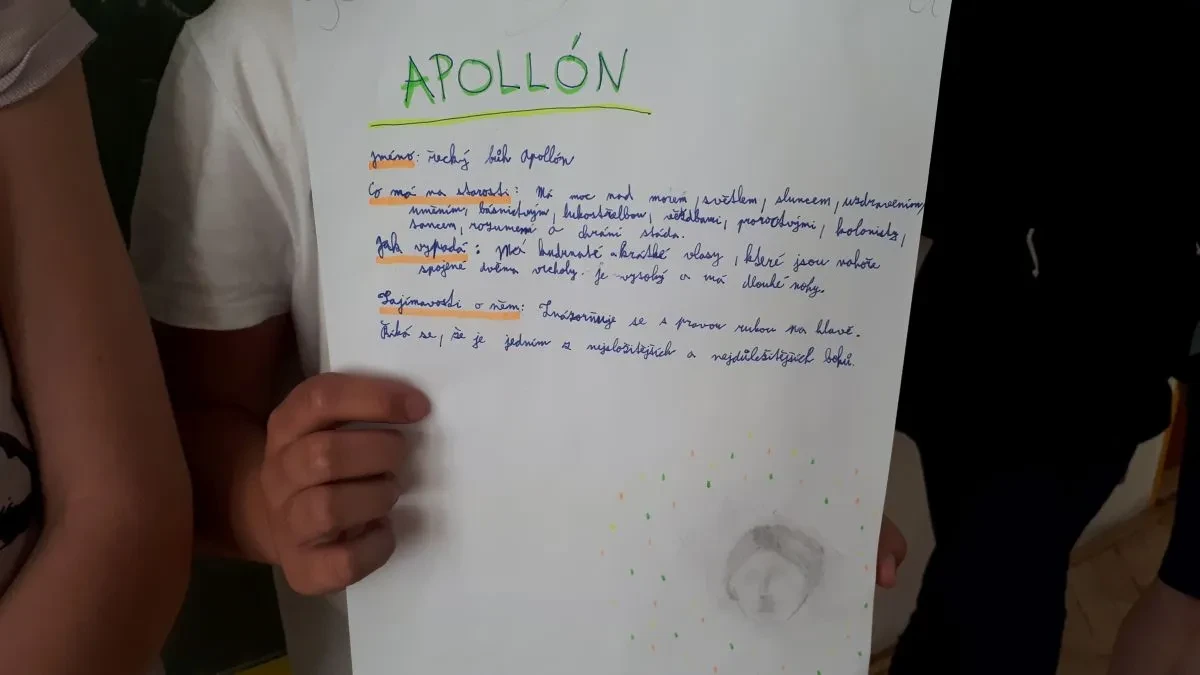 APOLLÓN
Jméno: řecký bůh Apollón
Co má na starosti: Má moc nad mořem, světlem, sluncem, uzdravením,
uměním, básnictvým, lukostřelbou, věštbami, proroctvými, kolonisty,
tancem, rozumem a chrání stáda.
Jak vypadá: Má kudrnaté a krátké vlasy, které jsou nahoře
spojené dvěma vrcholy. je vysoký a má dlouhé nohy.
Zajímavosti o něm: Znázorňuje se s pravou rukou na hlavě.
Říká se, že je jedním z nejsložitějších a nejdůležitějších bohů.